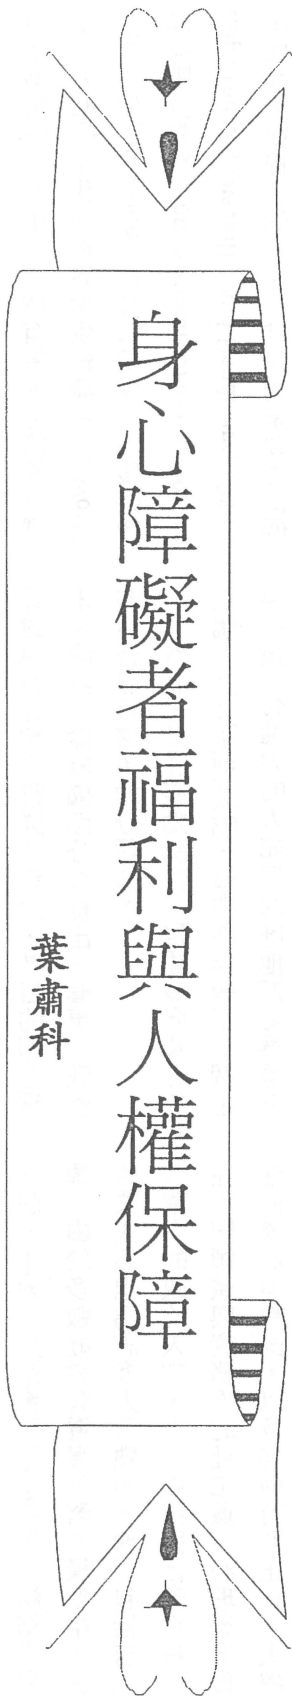 身心障礙者福利與人權保障
葉肅科